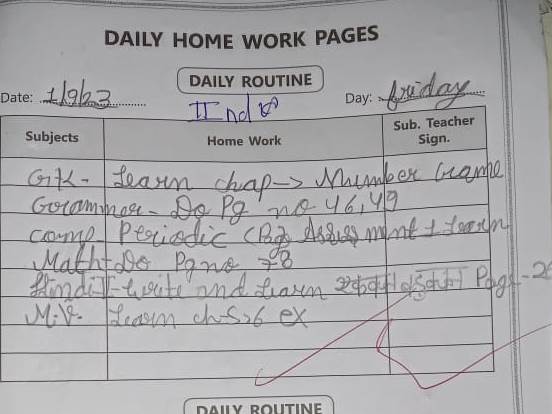 DAILY HOME WORK PAGES
DAILY ROUTINE
Date: 1/9/23 Day: friday
IInd
Subjects Home Work Sub. Teacher Sign.
G.K- Learn chap-> Nnumber Game
Grammer- Do Pg no 46,49
comp- Periodic (Pg Assessment + Learn
Math- Do Pg no 78
Hindi- write and Learn Page-26
M.V. Learn ch-5,6 ex
DAILY ROUTINE